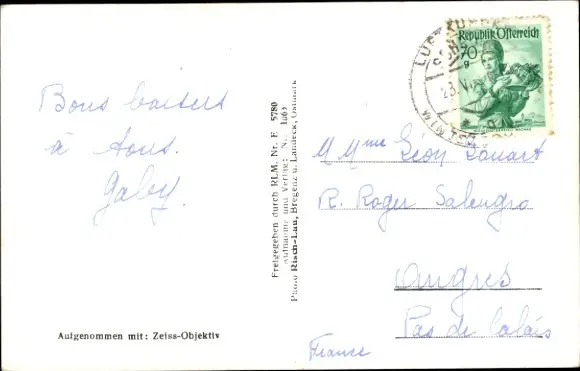 Bons baisers
à tous.
Gaby.
Aufgenommen mit: Zeiss-Objektiv
Freigegeben durch RLM. Nr. E 5780
Aufnahme und Verlag: N.
Photo Risch-Lau, Bregenz u. Landeck, Ostmark
LUFTKUR
Republik Österreich
70
g
23. V.
M Mme Léon Louart
R. Roger Salengro
Angres
Pas de Calais
France